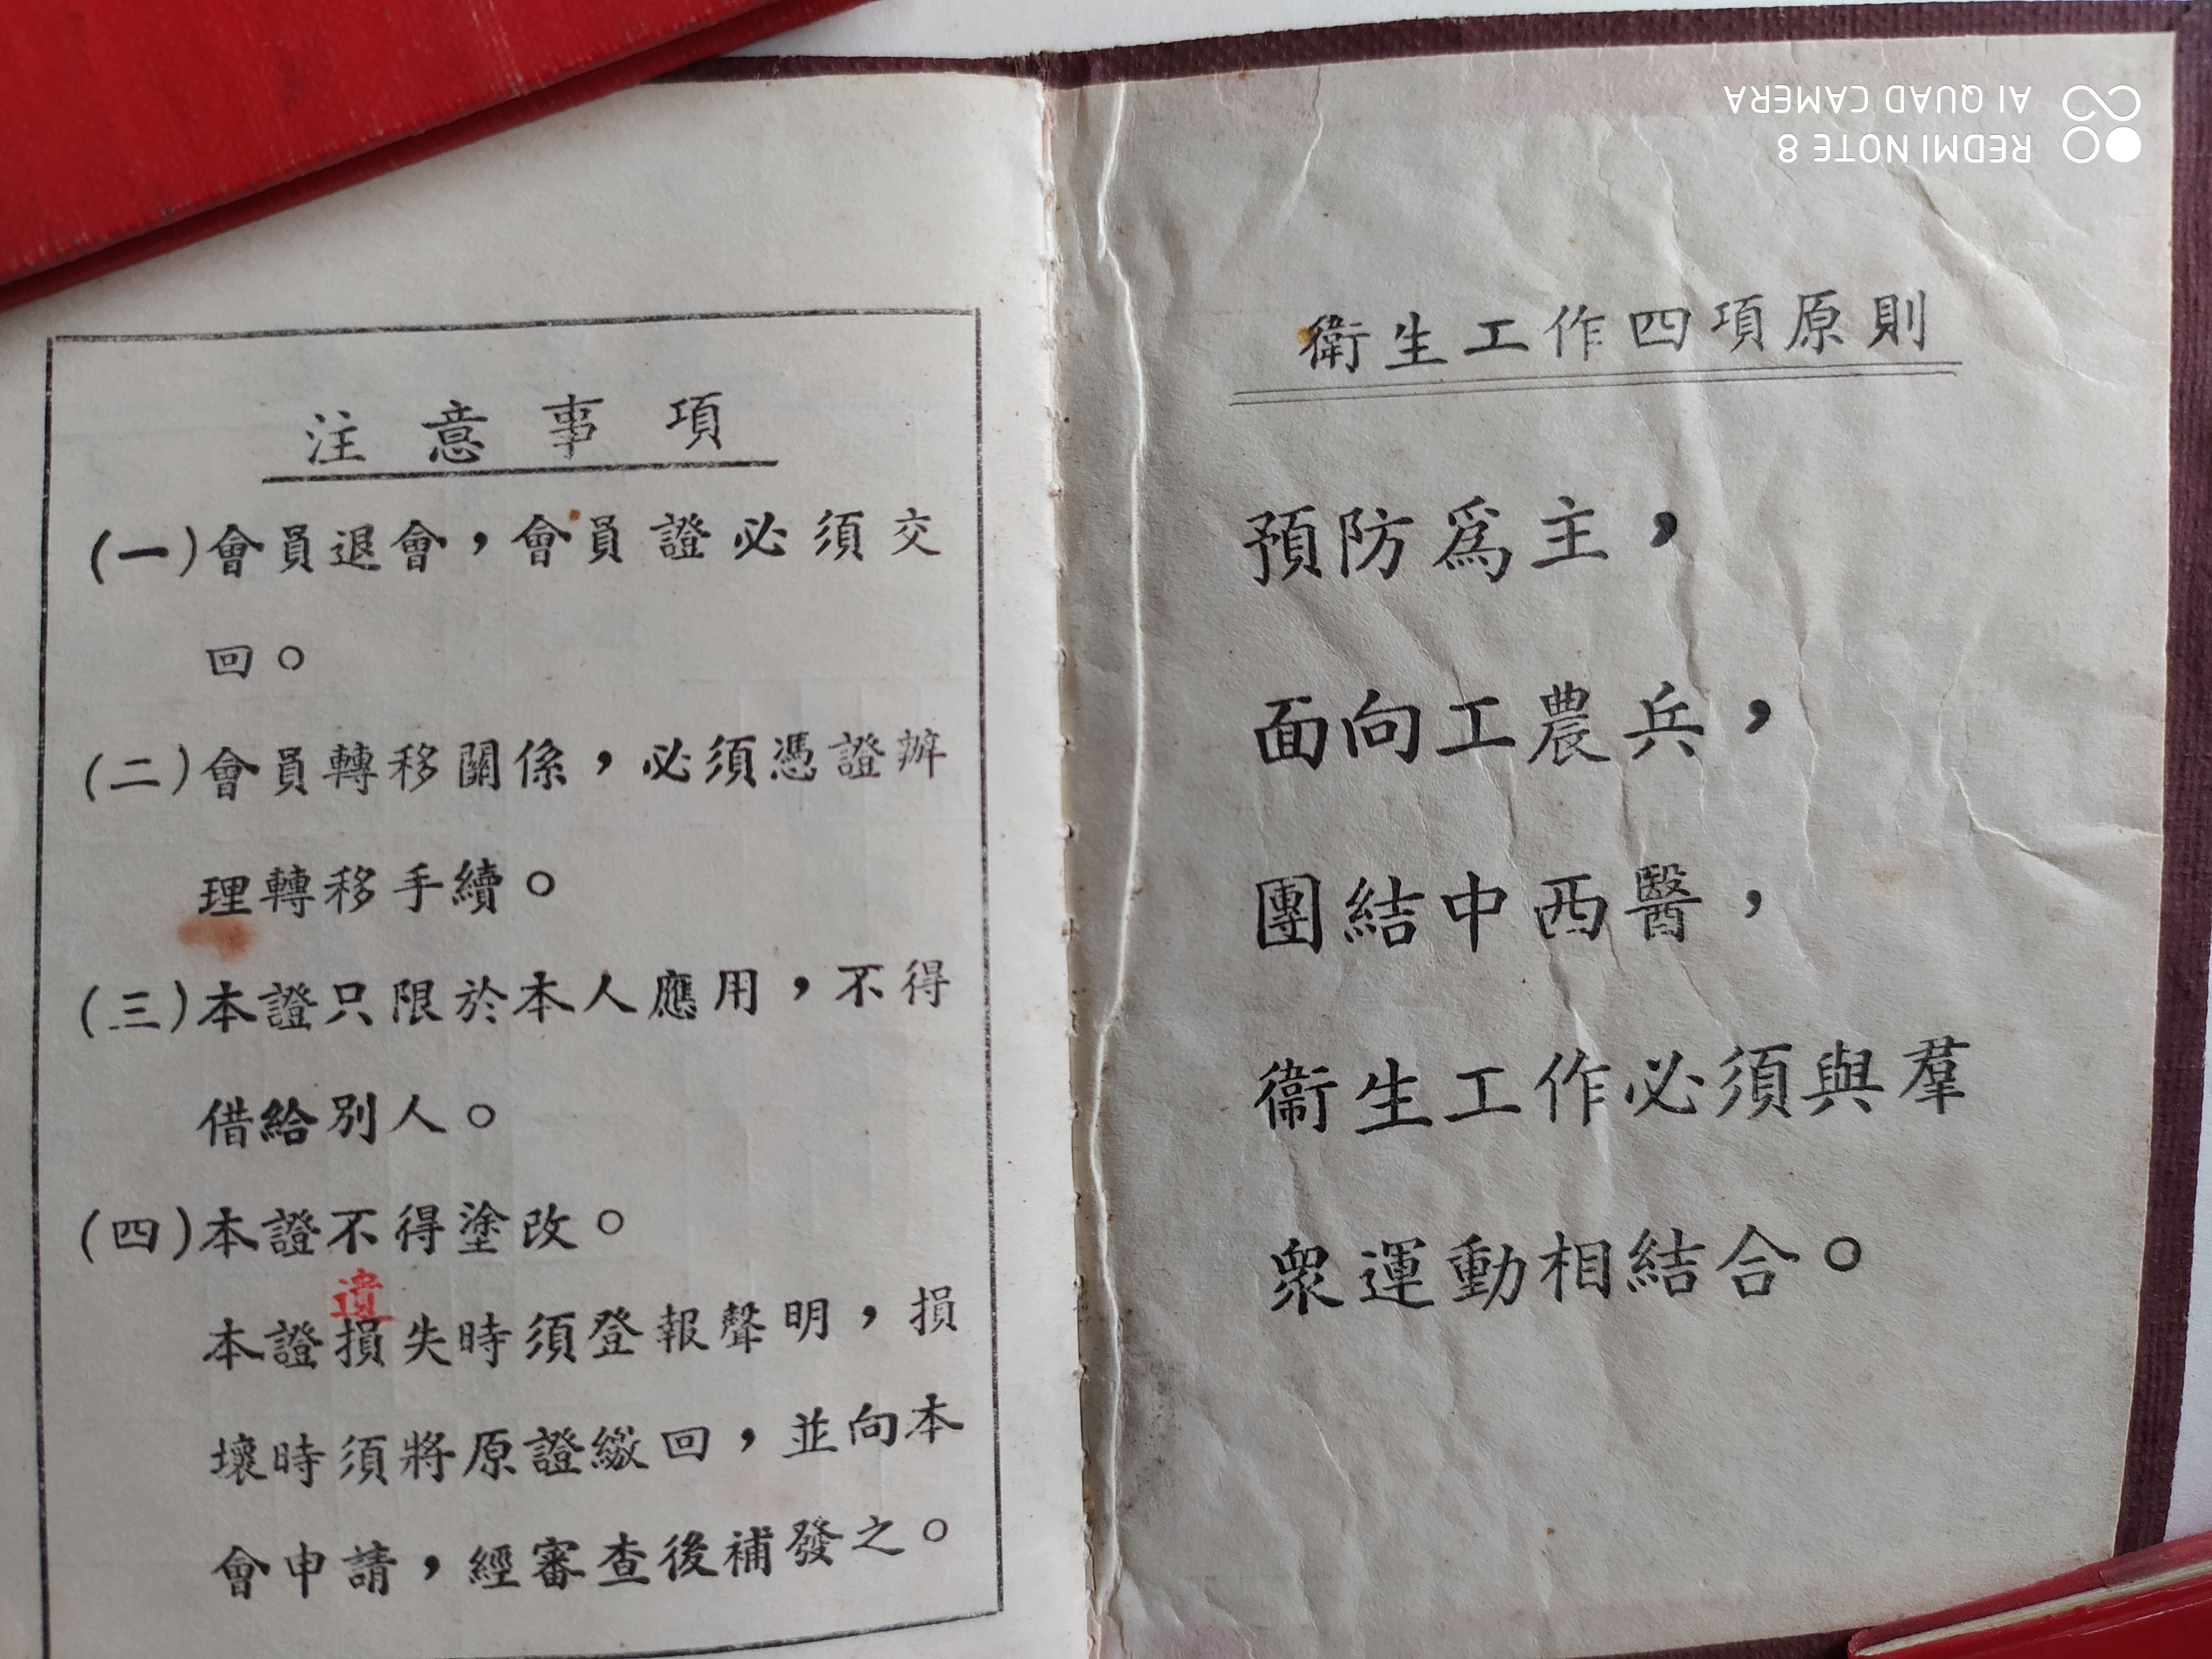 注意事項
(一)會員退會，會員證必須交
回。
(二)會員轉移關係，必須憑證辦
理轉移手續。
(三)本證只限於本人應用，不得
借給別人。
(四)本證不得塗改。
遺
本證損失時須登報聲明，損
壞時須將原證繳回，並向本
會申請，經審查後補發之。
衛生工作四項原則
預防爲主，
面向工農兵，
團結中西醫，
衞生工作必須與羣
衆運動相結合。
REDMI NOTE 8
AI QUAD CAMERA